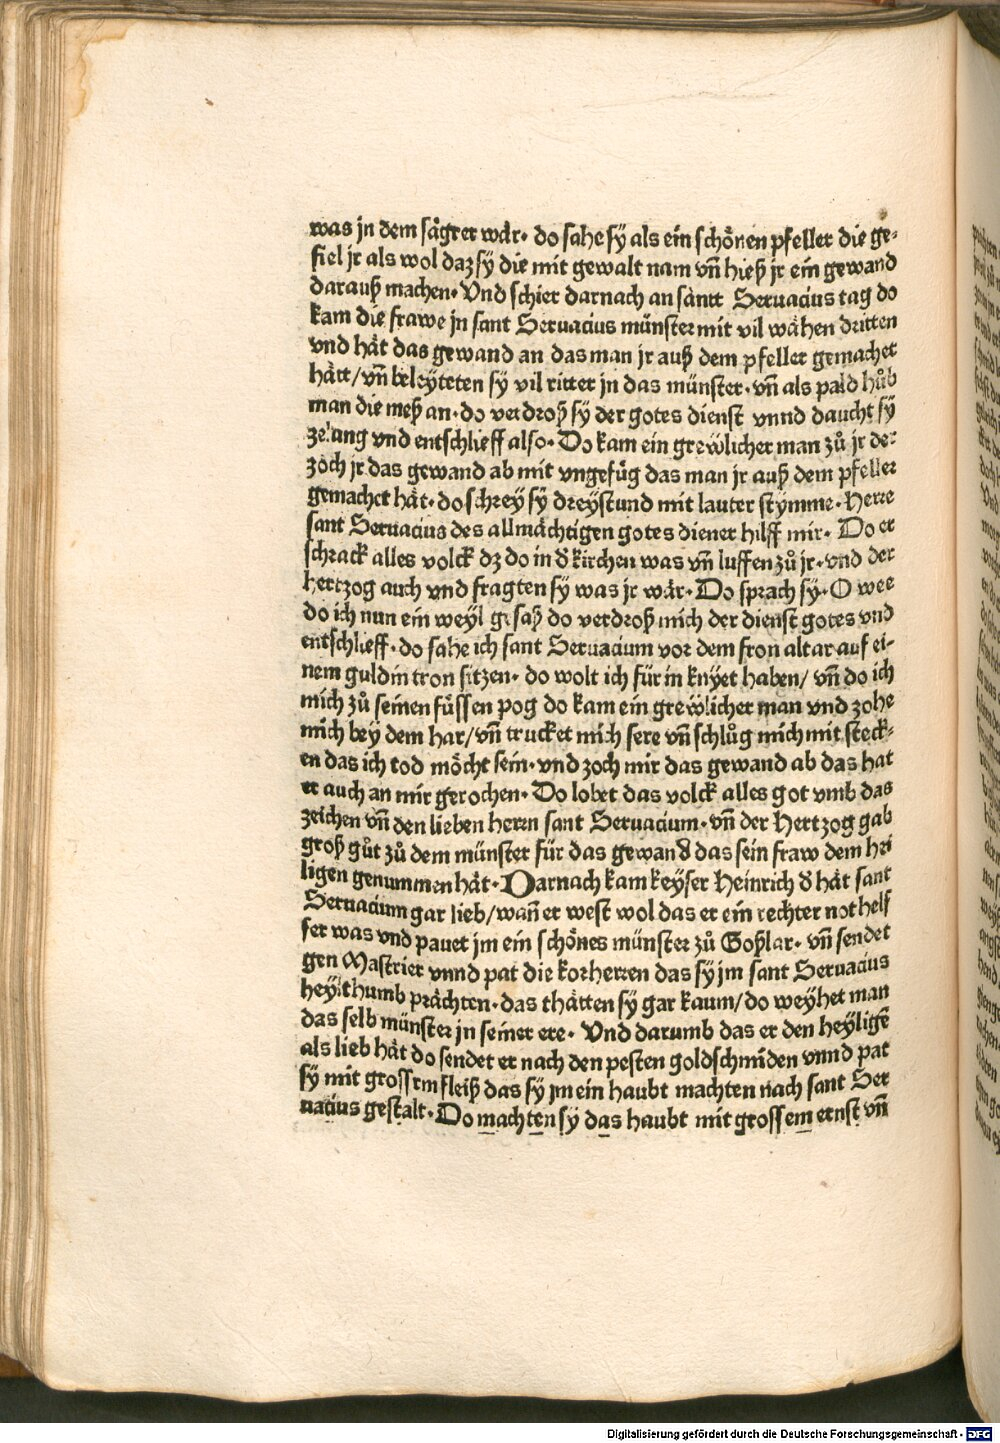 was jn dem sågrer wår· do sahe sÿ als ein schönen pfeller die ge-
fiel jr als wol daz sÿ die mit gewalt nam vñ hieß jr ein gewand
darauß machen· Vnd schier darnach an sànt Seruacius tag do
kam die frawe jn sant Seruacius münster mit vil wåhen dritten
vnd håt das gewand an das man jr auß dem pfeller gemachet
hått/vñ beleÿteten sÿ vil ritter jn das münster· vñ als pald hůb
man die meß an· do verdroß sÿ der gotes dienst vnnd daucht sÿ
zelang vnd entschlieff also· Do kam ein grewlicher man zů jr der
zoch jr das gewand ab mit vngefůg das man jr auß dem pfeller
gemachet håt· do schreÿ sÿ dreÿstund mit lauter stÿmme· Herre
sant Seruacius des allmåchtigen gotes diener hilff mir· Do er
schrack alles volck dz do in d̕ kirchen was vñ luffen zů jr· vnd der
hertzog auch vnd fragten sÿ was jr wår· Do sprach sÿ· O wee
do ich nun ein weÿl gesaß do verdroß mich der dienst gotes vnd
entschlieff· do sahe ich sant Seruacium vor dem fron altar auf ei-
nem guldin tron sitzen· do wolt ich für in knÿet haben/ vñ do ich
mich zů seinen füssen pog do kam ein grewlicher man vnd zohe
mich bey dem har/vñ trucket mich sere vñ schlůg mich mit steck-
en das ich tod möcht sein· vnd zoch mir das gewand ab das hat
er auch an mir gerochen· Do lobet das volck alles got vmb das
zeichen vñ den lieben herrn sant Seruacium· vñ der Hertzog gab
groß gůt zů dem münster für das gewand das sein fraw dem hei
ligen genummen håt· Darnach kam keÿser Heinrich d̕ håt sant
Seruacium gar lieb/wañ er west wol das er ein rechter not helf
fer was vnd pauet jm ein schönes münster zů Goßlar· vñ sendet
gen Mastriet vnnd pat die korherren das sÿ jm sant Seruacius
heÿlthumb pråchten· das thåtten sÿ gar kaum/do weÿhet man
das selb münster jn seiner ere· Vnd darumb das er den heÿligē
als lieb håt do sendet er nach den pesten goldschmiden vnnd pat
sÿ mit grossem fleiß das sÿ jm ein haubt machten nach sant Ser
uacius gestalt· Do machten sÿ das haubt mit grossem ernst vñ
Digitalisierung gefördert durch die Deutsche Forschungsgemeinschaft - DFG